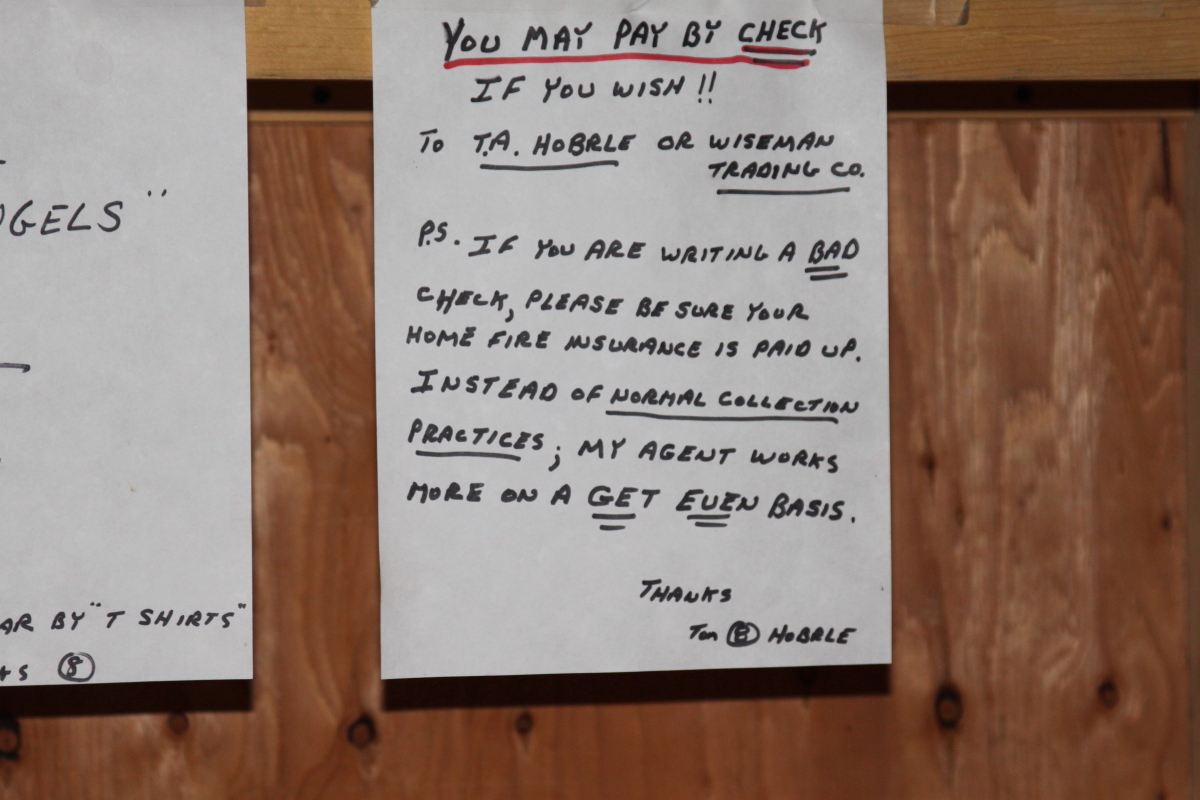 YOU MAY PAY BY CHECK
IF YOU WISH!!
TO T.A. HOBRLE OR WISEMAN
TRADING CO.
P.S. IF YOU ARE WRITING A BAD
CHECK, PLEASE BE SURE YOUR
HOME FIRE INSURANCE IS PAID UP.
INSTEAD OF NORMAL COLLECTION
PRACTICES; MY AGENT WORKS
MORE ON A GET EVEN BASIS.
THANKS
Tom 8 HOBRLE
GELS"
AR BY "T SHIRTS"
8